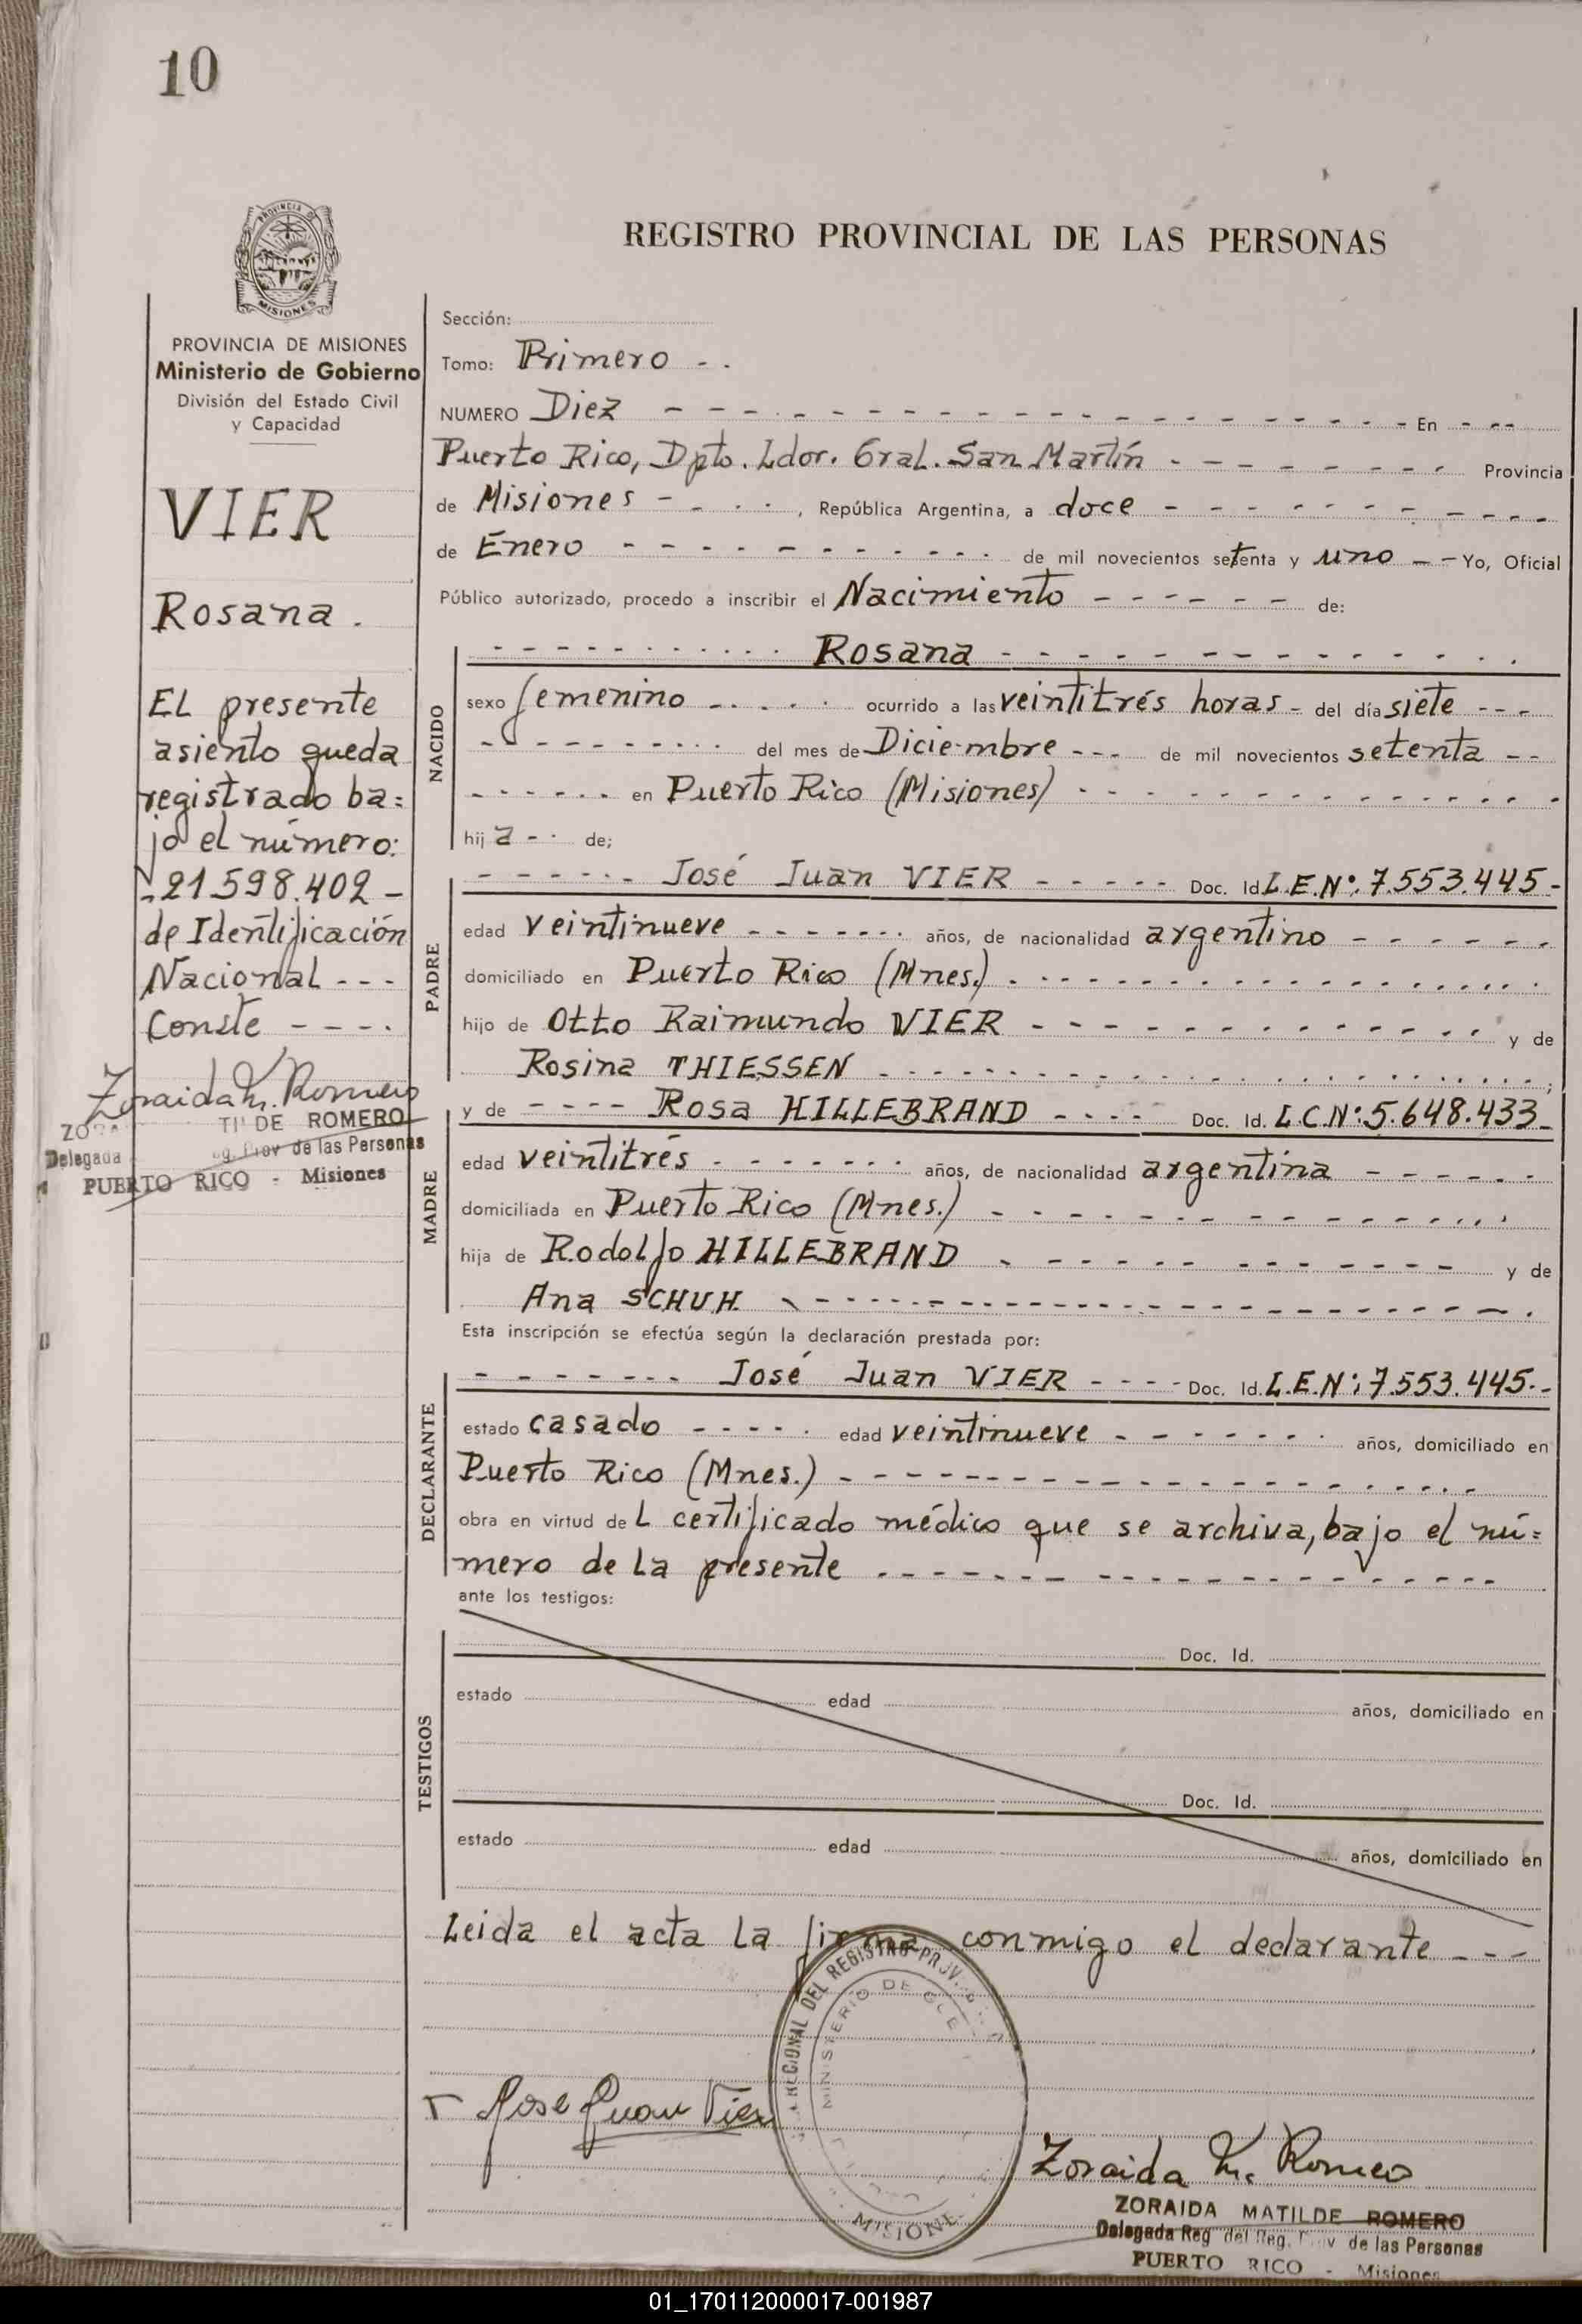 10
PROVINCIA DE
MISIONES
PROVINCIA DE MISIONES
Ministerio de Gobierno
División del Estado Civil
y Capacidad
VIER
Rosana.
El presente
asiento queda
registrado ba=
jo el número:
-21598.402-
de Identificación
Nacional ---
Conste ----
Zoraida M. Romero
DE ROMERO
Delegada Prov de las Personas
PUERTO RICO - Misiones
REGISTRO PROVINCIAL DE LAS PERSONAS
Sección:
Tomo: Primero - .
NUMERO Diez - - - En - --
Puerto Rico, Dpto. Ldor. Gral. San Martín - - - Provincia
de Misiones - - . . , República Argentina, a doce - - -
de Enero - - - de mil novecientos setenta y uno - - Yo, Oficial
Público autorizado, procedo a inscribir el Nacimiento - - - de:
NACIDO
- - - Rosana - - -
sexo femenino - . . . . ocurrido a las veintitrés horas - del día siete ---
- - - del mes de Diciembre --- de mil novecientos setenta --
- - - en Puerto Rico (Misiones) - - -
hij a - . de;
PADRE
- - - José Juan VIER - - - Doc. Id. L.E.Nº: 7.553.445-
edad veintinueve - - - años, de nacionalidad argentino - - -
domiciliado en Puerto Rico (Mnes.) - - -
hijo de Otto Raimundo VIER - - - y de
Rosina THIESSEN - - - ;
MADRE
y de - - - - Rosa HILLEBRAND - - - - Doc. Id. L.C.Nº: 5.648.433-
edad veintitrés - - - años, de nacionalidad argentina - - -
domiciliada en Puerto Rico (Mnes.) - - -
hija de Rodolfo HILLEBRAND - - - y de
Ana SCHUH - - - .
Esta inscripción se efectúa según la declaración prestada por:
DECLARANTE
- - - José Juan VIER - - - - Doc. Id. L.E.Nº: 7.553.445.-
estado casado - - - - . edad veintinueve - - - años, domiciliado en
Puerto Rico (Mnes.) - - -
obra en virtud de l certificado médico que se archiva, bajo el nú=
mero de la presente - - -
ante los testigos:
TESTIGOS
Doc. Id.
estado edad años, domiciliado en
Doc. Id.
estado edad años, domiciliado en
Leida el acta la firma conmigo el declarante - - -
REGIONAL DEL REGISTRO PROV
MINISTERIO DE
MISIONE
Jose Juan Vier
Zoraida M. Romero
ZORAIDA MATILDE ROMERO
Delegada Reg del Reg. Prov de las Personas
PUERTO RICO - Misiones
01_170112000017-001987